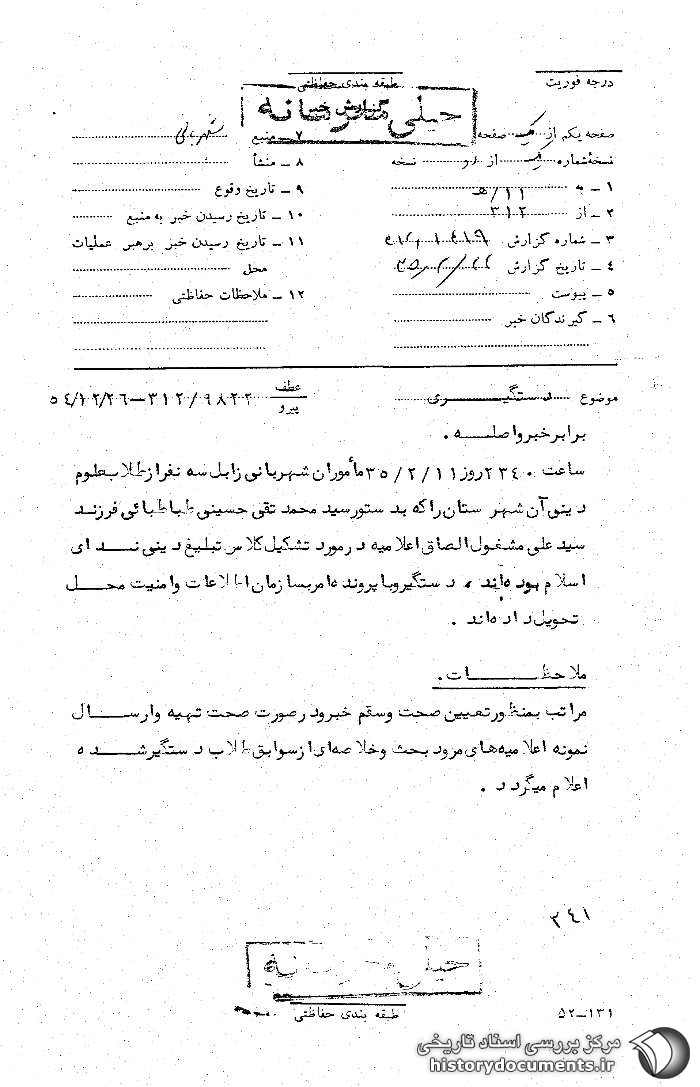 درجه فوریت
طبقه بندی حفاظتی
گزارش خبر
خیلی محرمانه
صفحه یکم از یک صفحه
نسخهٔ شماره یک از دو نسخه
۱ – به ۱۱/ هـ
۲ – از ۳۱۲
۳ – شماره گزارش
۴ – تاریخ گزارش
۵ – پیوست
۶ – گیرندگان خبر
۷ – منبع شهربانی
۸ – منشأ
۹ – تاریخ وقوع
۱۰ – تاریخ رسیدن خبر به منبع
۱۱ – تاریخ رسیدن خبر برهبر عملیات
محل
۱۲ – ملاحظات حفاظتی
موضوع دستگیـــری
عطف
پیرو
۳۱۲/۹۸۲۲–۵۴/۱۲/۲۶
برابر خبر واصلـــه .
ساعت ۲۳۴۰ روز ۳۵/۲/۱۱ مأموران شهربانی زابل سه نفر از طلاب علوم
دینی آن شهرستان را که بدستور سید محمد تقی حسینی طباطبائی فرزند
سید علی مشغول الصاق اعلامیه در مورد تشکیل کلاس تبلیغ دینی ندای
اسلام بوده‌اند ، دستگیر و با پرونده امر بسازمان اطلاعات و امنیت محل
تحویل داده‌اند .
ملاحظـــات .
مراتب بمنظور تعیین صحت و سقم خبر و در صورت صحت تهیه و ارسال
نمونه اعلامیه‌های مورد بحث و خلاصه‌ای از سوابق طلاب دستگیر شده
اعلام میگردد .
۳۴۱
خیلی محرمانه
طبقه بندی حفاظتی
۵۲–۱۳۱
مرکز بررسی اسناد تاریخی
historydocuments.ir